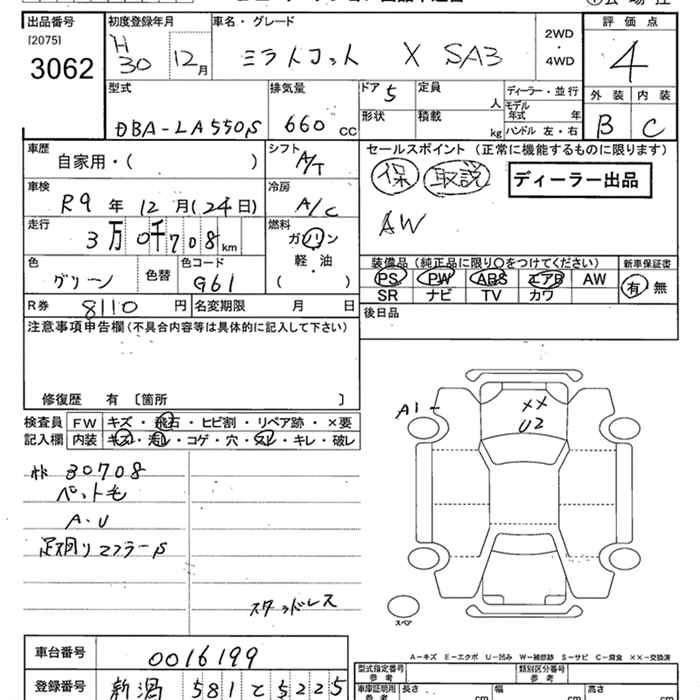 出品番号
[2075]
3062
初度登録年月
H
30 12月
車名・グレード
ミラトコット X SA3
2WD
・
4WD
評価点
4
外装 内装
B C
型式
DBA-LA550S
排気量
660 cc
ドア 5
形状
定員
人
積載
kg
ディーラー・並行
モデル
年式 年
ハンドル 左・右
車歴
自家用・( )
シフト
A/T
車検
R9 年 12 月(24日)
冷房
A/C
走行
3万0千708km
燃料
ガソリン
軽・油
( )
色
グリーン
色替
色コード
G61
R券 8110 円
名変期限 月 日
セールスポイント (正常に機能するものに限ります)
保 取説 ディーラー出品
AW
装備品 (純正品に限り○をつけてください)
PS PW ABS エアB AW
SR ナビ TV カワ
新車保証書
有 無
後日品
注意事項申告欄(不具合内容等は具体的に記入して下さい)
修復歴 有 〔箇所 〕
検査員
記入欄
FW キズ・飛石・ヒビ割・リペア跡・×要
内装 キズ・汚レ・コゲ・穴・スレ・キレ・破レ
30708
ペット毛
A・U
足廻リマフラーS
スタッドレス
A1
××
U2
スペア
A－キズ E－エクボ U－凹み W－補修跡 S－サビ C－腐食 ××－交換済
車台番号 0016199
登録番号 新潟 581 と 5225
型式指定番号
参考
類別区分番号
参考
車庫証明用
参考
長さ cm
幅 cm
高さ cm